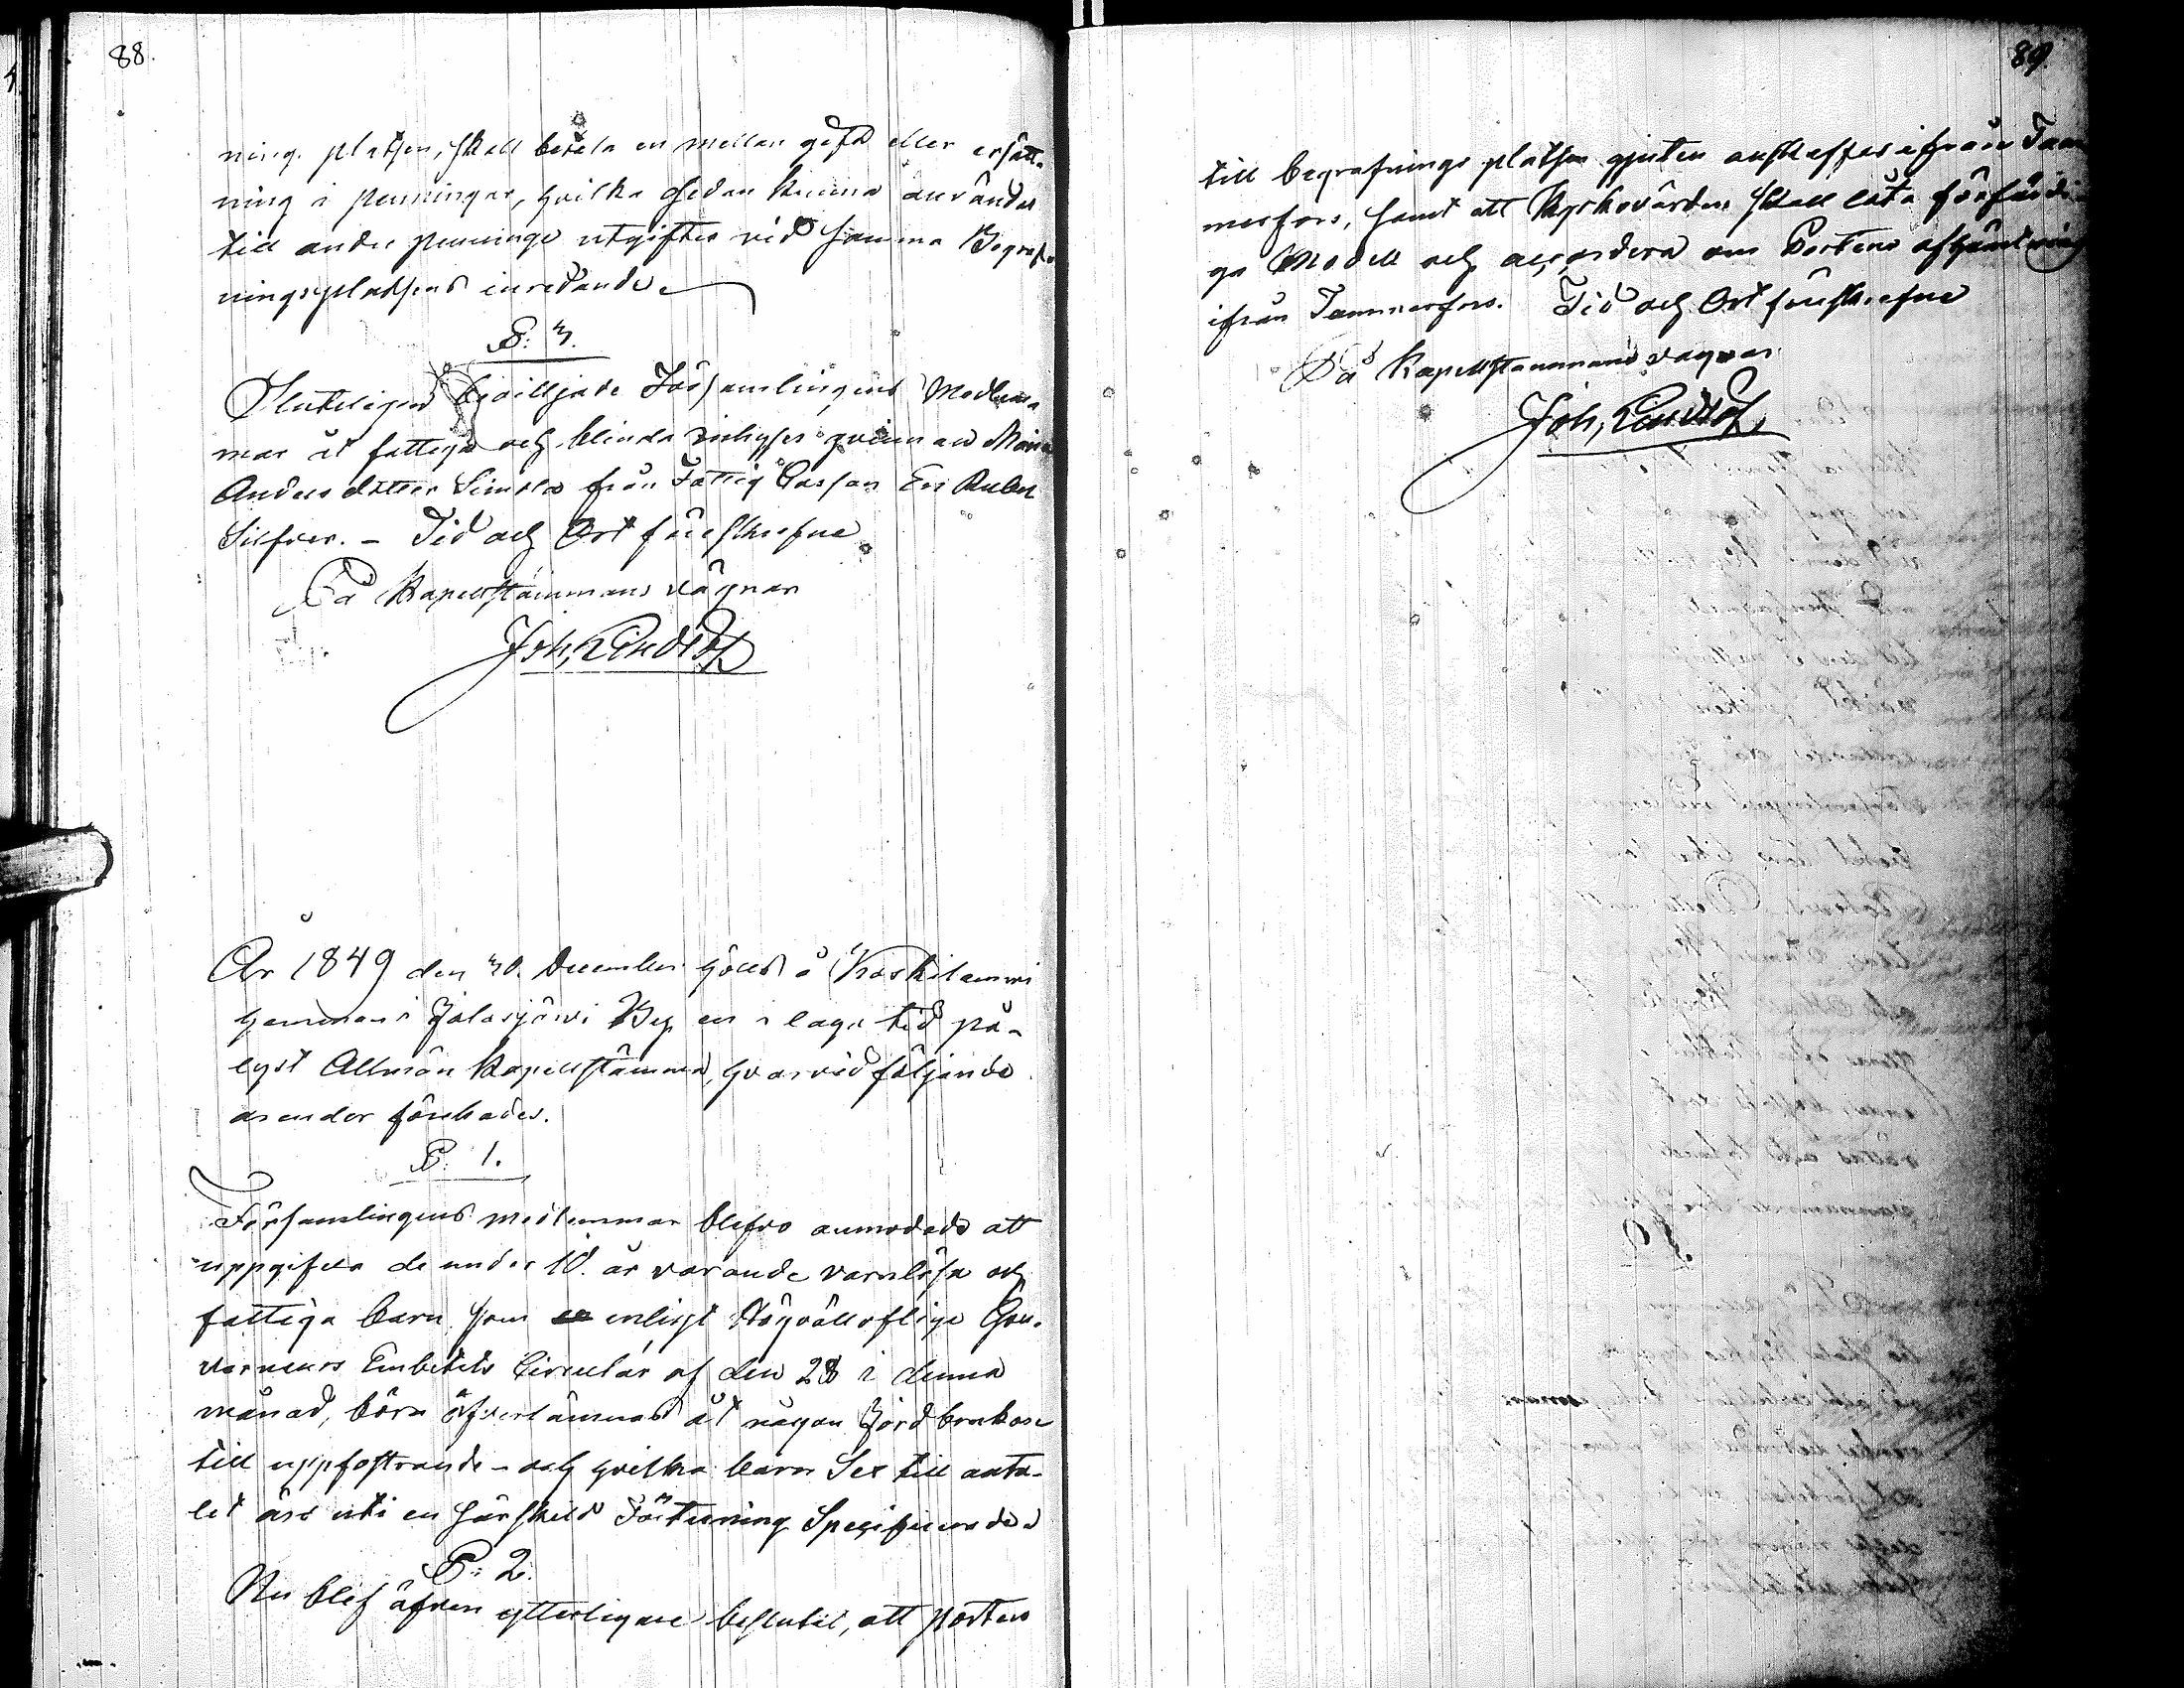 88.
ning. platsen, skall betala en mellan gift eller ersätt-
ning i penningar, hvilka sedan kunna användas
till andra penninge utgifter vid samma Begraf-
ningsplatsens inredande.
§: 3.
Slutligen beviljade Församlingens Medlem-
mar åt fattiga och blinda inhyses qvinnan Maria
Andersdotter Simola från Fattig Cassan En Rubel
Silfver. - Tid och Ort förskrefne
På Kapellstämmans vägnar
Joh, Lindlöf
År 1849 den 30. December hölls å Koskilammi
hemman i Jalasjärvi By en i laga tid på-
lyst Allmän Kapellstämma, hvarvid följande
arender förehades.
§: 1.
Församlingens medlemmar blefvo anmodade att
uppgifva de under 10. år varande varnlösa och
fattiga barn som enligt Högvällofliga Gou-
verneurs Embetets Circulär af den 28 i denna
månad, böra öfverlämnas åt någon Jordbrukare
till uppfostrande - och hvilka barn Sex till anta-
let äro uti en särskild Förteckning Specificerade
§: 2.
Nu blef äfven ytterligare beslutit, att porten
89.
till begrafnings platsen gjuten anskaffas ifrån Tam
merfors, samt att Kyrkovärden skall låta förfärdi-
ga Modell och accordera om Portens afhämtning
ifrån Tammerfors. Tid och Ort förskrefne
På Kapellstämmans vägnar
Joh, Lindlöf,